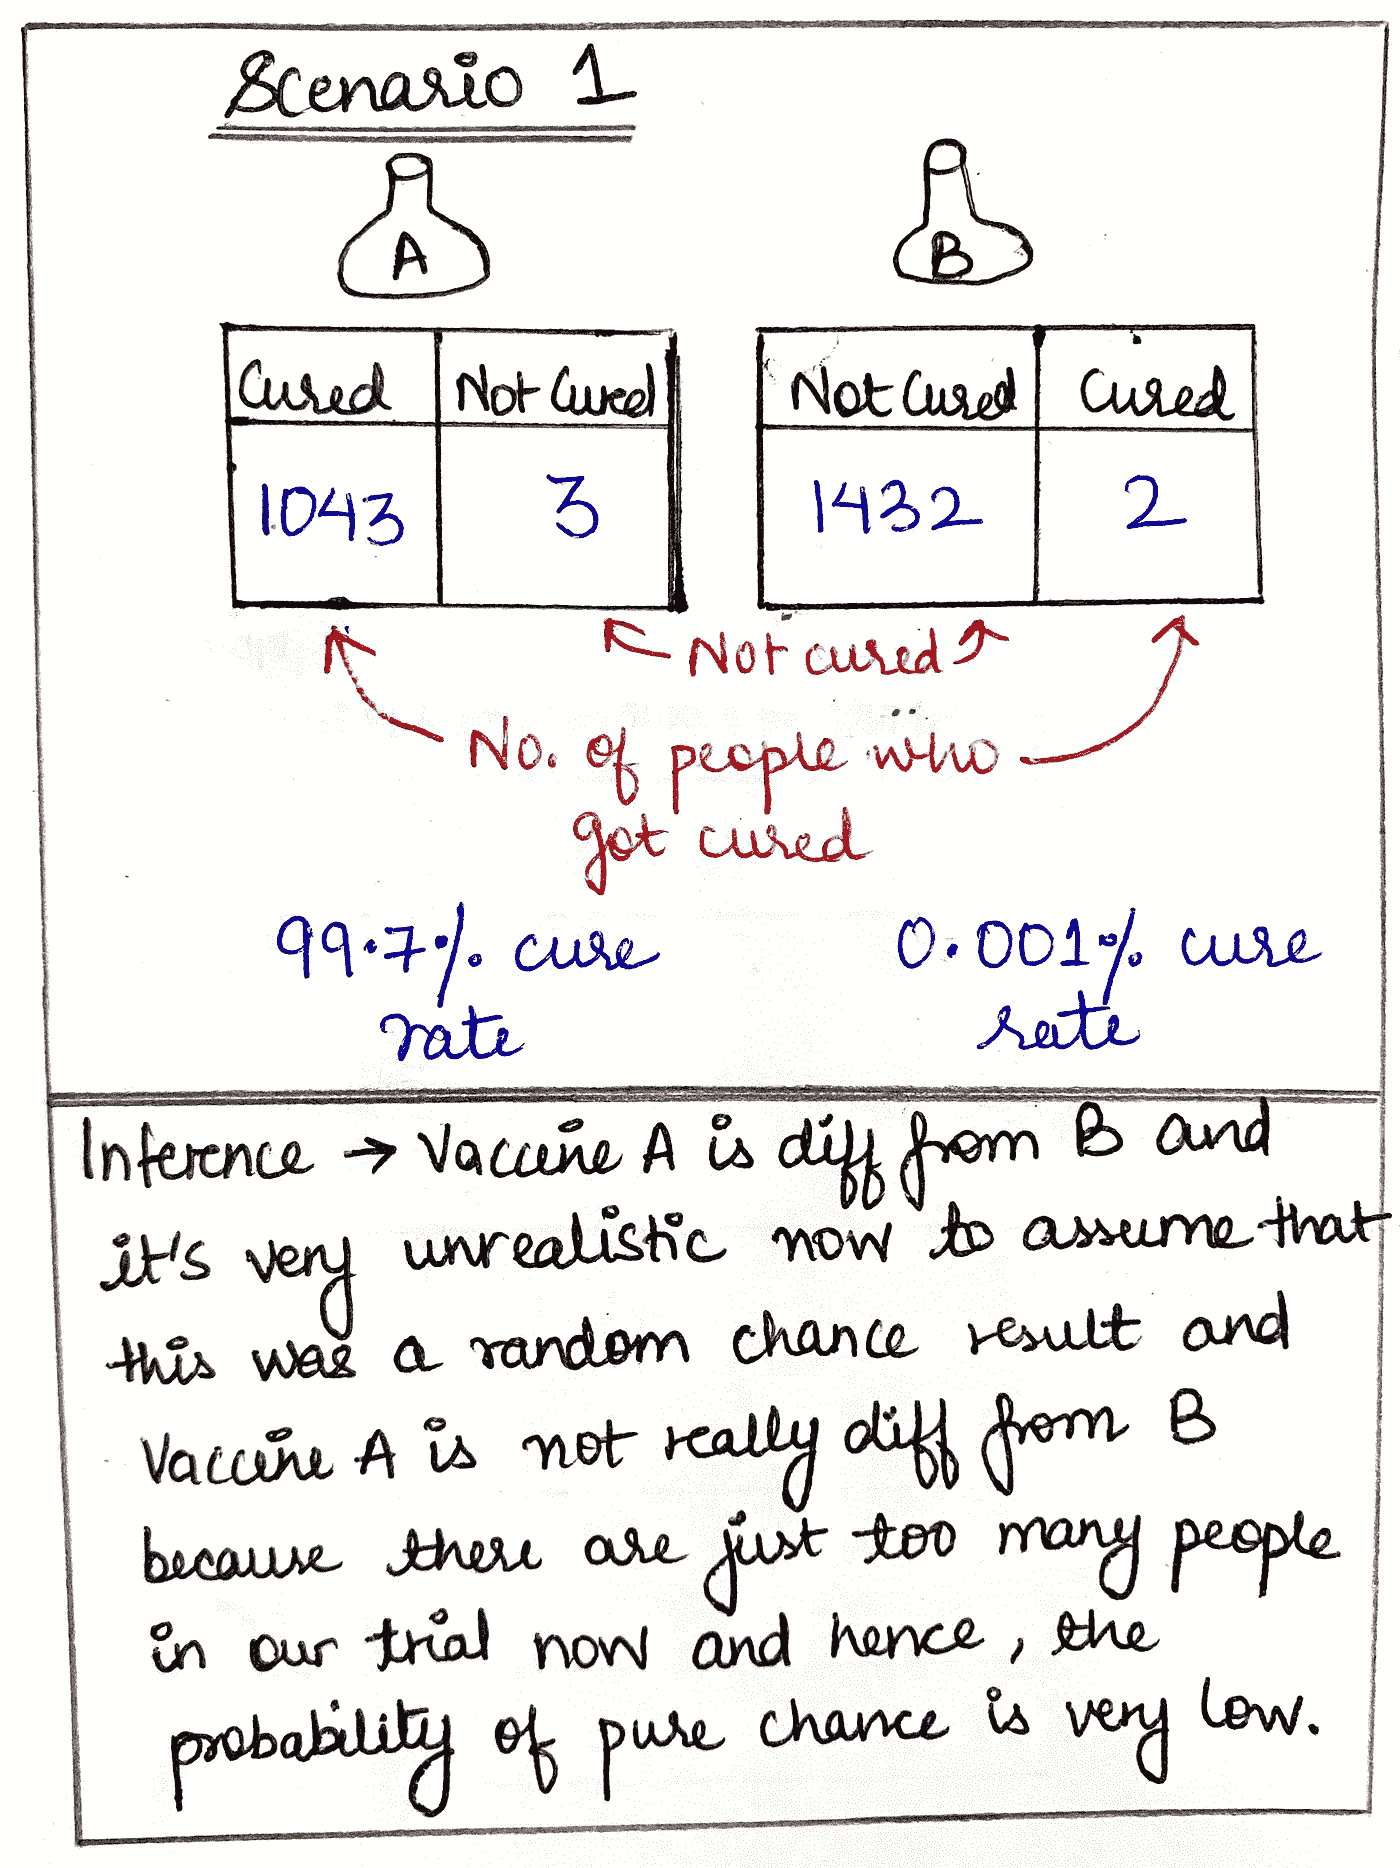 Scenario 1
A
B
Cured Not Cured
1043 3
Not Cured Cured
1432 2
Not cured
No. of people who
got cured
99.7% cure
rate
0.001% cure
rate
Inference → Vaccine A is diff from B and
it's very unrealistic now to assume that
this was a random chance result and
Vaccine A is not really diff from B
because there are just too many people
in our trial now and hence, the
probability of pure chance is very low.